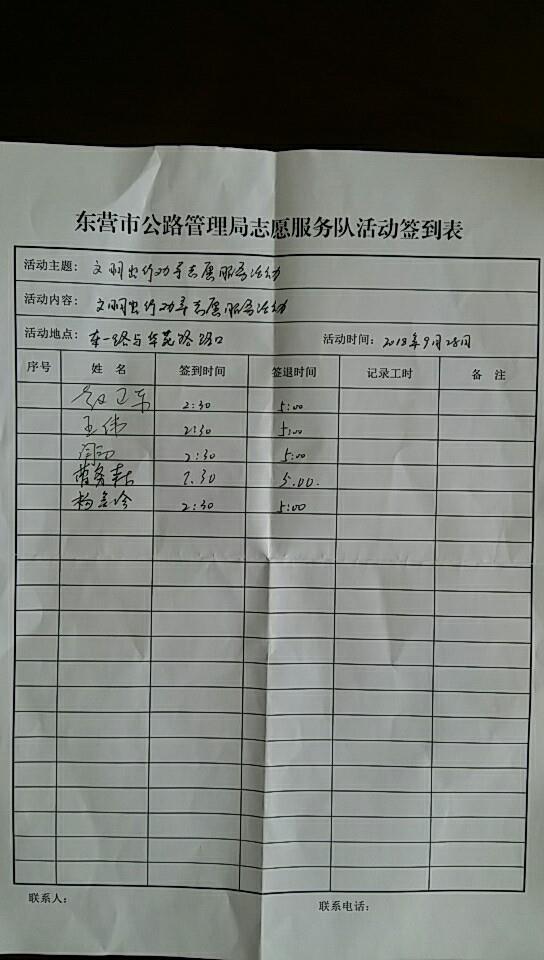 东营市公路管理局志愿服务队活动签到表
活动主题：文明出行劝导志愿服务活动
活动内容：文明出行劝导志愿服务活动
活动地点：东一路与 路口 活动时间：2018年9月28日
序号 姓名 签到时间 签退时间 记录工时 备注
赵卫东 2:30 5:00
王伟 2:30 5:00
2:30 5:00
2.30 5.00.
杨 2:30 5:00
联系人： 联系电话：